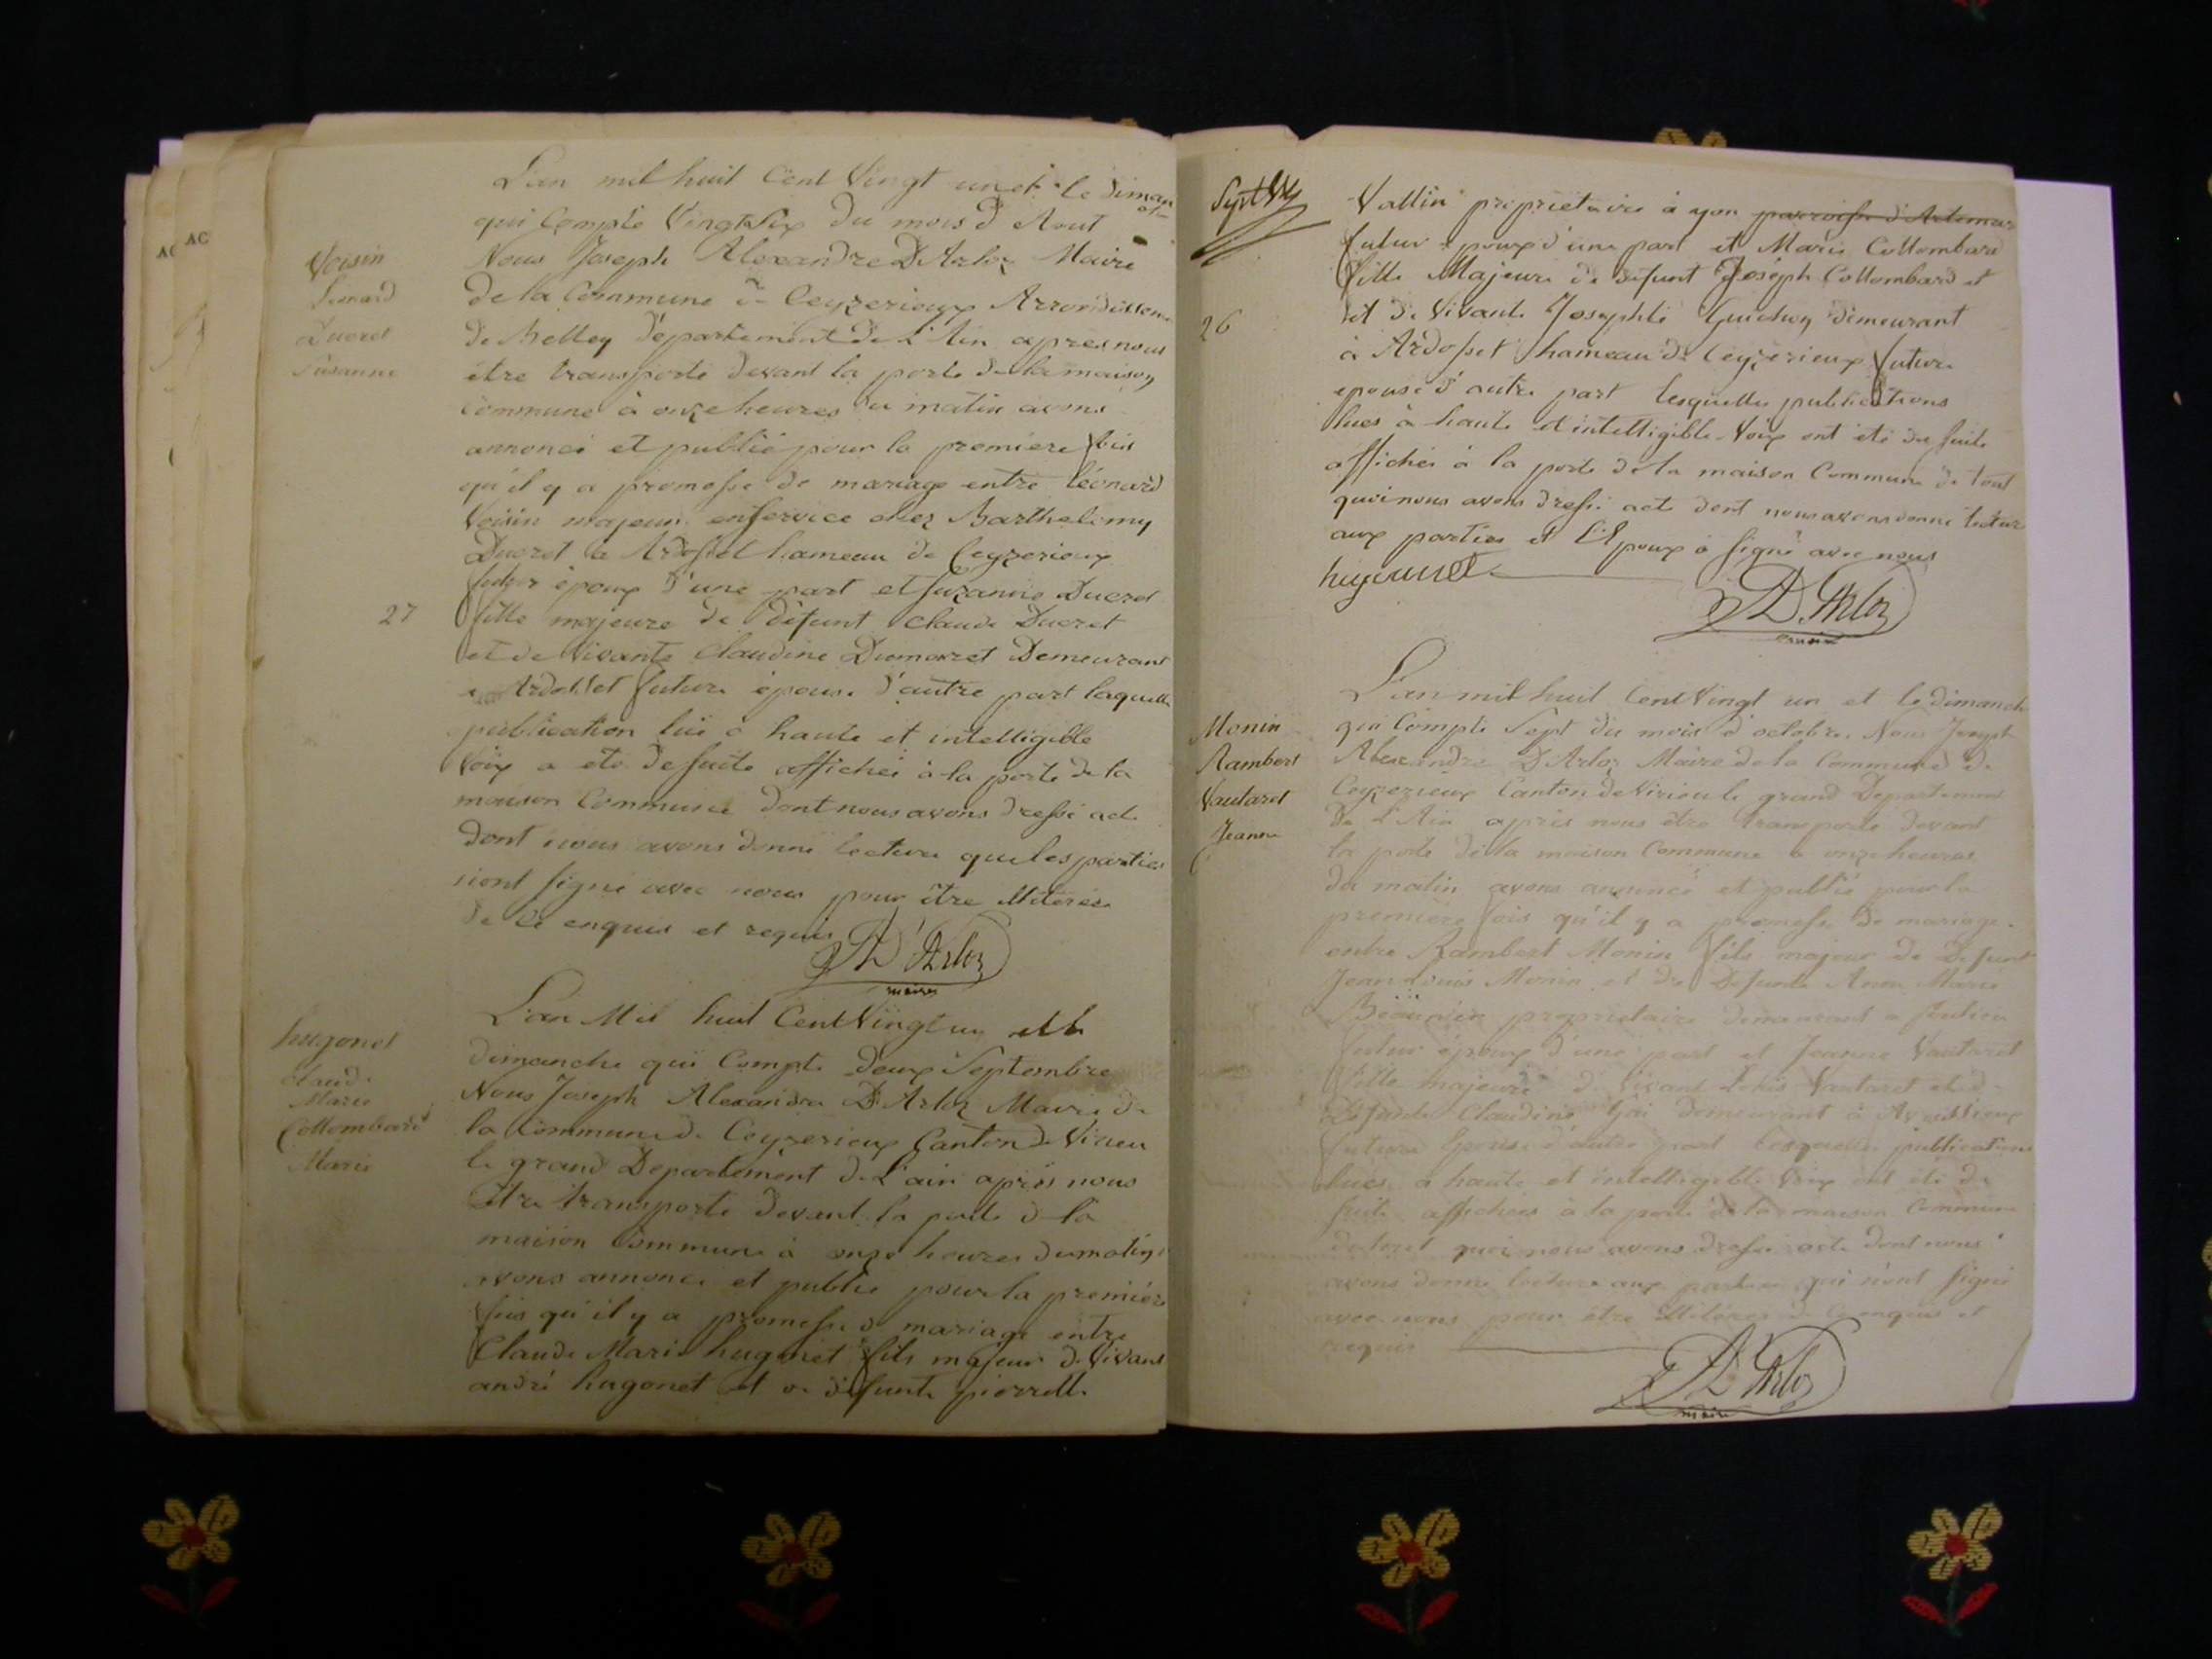 AC AC
L'an mil huit Cent Vingt un et le diman
qui Compte Vingt Six du mois d'Aout
Voisin
Léonard
Ducret
Susanne
Nous Joseph Alexandre D'Arloz Maire
de la Commune de Ceyzerieux Arrondissem
de Belley département de L'Ain apres nous
être transporté devant la porte de la maison
commune à onze heures du matin avons
annoncé et publié pour la premiere fois
qu'il y a promesse de mariage entre léonard
Voisin majeur en service chez Barthelemy
Ducret à Ardosset hameau de Ceyzerieux
futur époux d'une part et Suzanne Ducret
27
fille majeure de défunt Claude Ducret
et de Vivante Claudine Dumarest Demeurant
Ardosset future épouse d'autre part laquelle
publication lue à haute et intelligible
Voix a été de suite affichée à la porte de la
maison Commune dont nous avons dressé acte
dont nous avons donné lecture que les parties
n'ont signé avec nous pour être illiterés
de ce enquis et requis
D'Arloz
maire
L'an Mil huit Cent Vingt un et le
hugonet
Claude
Marie
Collombard
Marie
dimanche qui Compte deux Septembre
Nous Joseph Alexandre D'Arloz Maire de
la Commune de Ceyzerieux Canton de Virieu
le grand Departement de L'ain après nous
être transporté devant la porte de la
maison Commune à onze heures du matin
avons annoncé et publié pour la premiére
fois qu'il y a promesse de mariage entre
Claude Marie hugonet fils majeur de Vivant
andré hugonet et de défunte pierrette
Sept
Vallin propriétaire à yon parroisse d'Artemar
futur époux d'une part et Marie Collombard
fille Majeure de défunt Joseph Collombard et
et de Vivante Josephte Guichon demeurant
26
à Ardosset hameau de Ceyzerieux future
epouse d'autre part lesquelles publications
lues à haute et intelligible Voix ont été de suite
affichés à la porte de la maison Commune de tout
quoi nous avons dressé acte dont nous avons donné lecture
aux parties et l'Epoux a signé avec nous
hugonnet
D'Arloz
maire
L'an mil huit Cent Vingt un et le dimanche
Monin
Rambert
Vautaret
Jeanne
qui Compte Sept du mois d'octobre Nous Joseph
Alexandre D'Arloz Maire de la Commune de
Ceyzerieux Canton de Virieu le grand Departement
De L'Ain après nous être transporté devant
la porte de la maison Commune à onze heures
du matin avons annoncé et publié pour la
premiere fois qu'il y a promesse de mariage
entre Rambert Monin fils majeur de Defunt
Jean Louis Monin et de Defunte Anne Marie
propriétaire demeurant a
futur époux d'une part et Jeanne Vautaret
fille majeure de Vivant Vautaret et de
Defunte Claudine demeurant à
future Epouse d'autre part lesquelles publications
lues à haute et intelligible Voix ont été de
suite affichées à la porte de la maison Commune
de tout quoi nous avons dressé acte dont nous
avons donné lecture aux parties qui n'ont signé
avec nous pour être illiterés de ce enquis et
requis
D'Arloz
maire